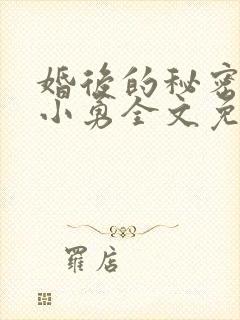 婚後的秘密
小勇全文免
羅店